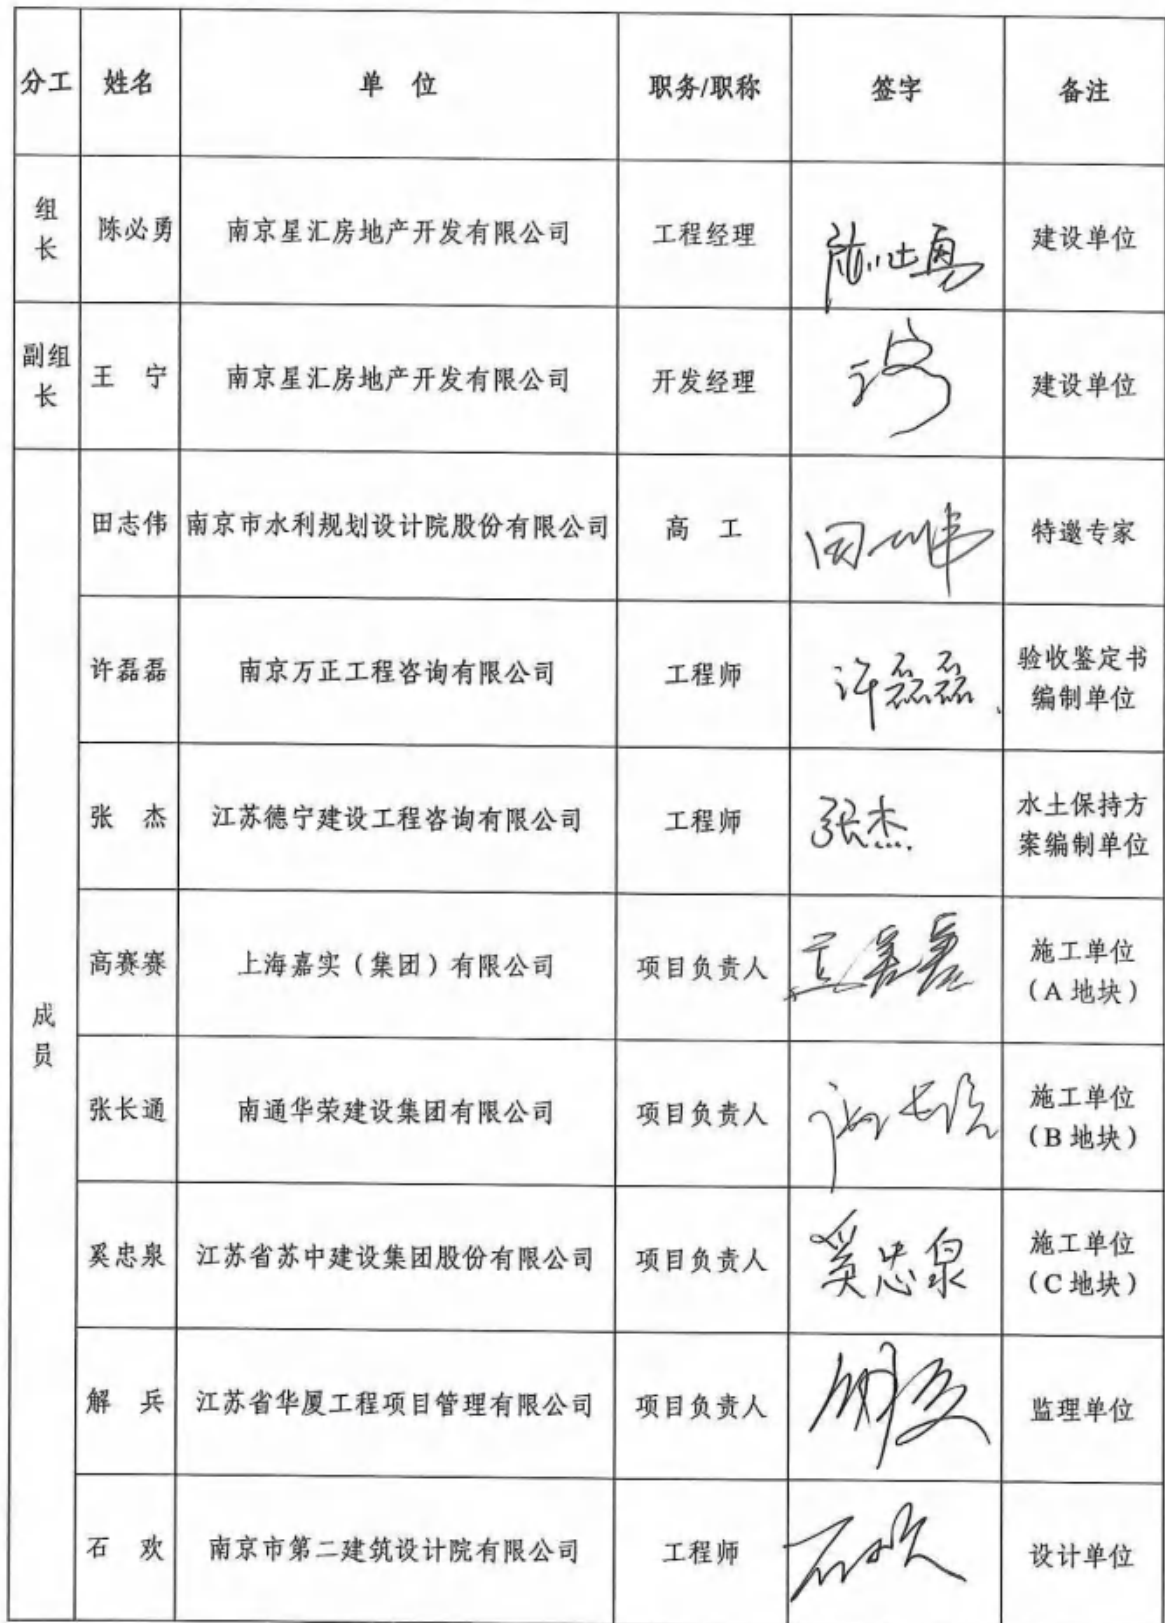 分工 姓名 单 位 职务/职称 签字 备注
组长 陈必勇 南京星汇房地产开发有限公司 工程经理 陈必勇 建设单位
副组长 王 宁 南京星汇房地产开发有限公司 开发经理 建设单位
成员
田志伟 南京市水利规划设计院股份有限公司 高 工 田志伟 特邀专家
许磊磊 南京万正工程咨询有限公司 工程师 许磊磊 验收鉴定书
编制单位
张 杰 江苏德宁建设工程咨询有限公司 工程师 张杰 水土保持方
案编制单位
高赛赛 上海嘉实（集团）有限公司 项目负责人 高赛赛 施工单位
（A 地块）
张长通 南通华荣建设集团有限公司 项目负责人 张长通 施工单位
（B 地块）
奚忠泉 江苏省苏中建设集团股份有限公司 项目负责人 奚忠泉 施工单位
（C 地块）
解 兵 江苏省华厦工程项目管理有限公司 项目负责人 监理单位
石 欢 南京市第二建筑设计院有限公司 工程师 石欢 设计单位